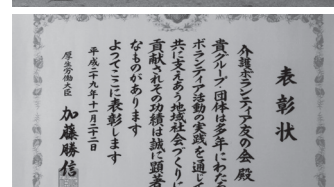 表彰状
介護ボランティア友の会殿
貴グループ・団体は多年にわた
ボランティア活動の実践を通じ
共に支えあう地域社会づくりに
貢献されその功績は誠に顕著
なものがあります
よってここに表彰します
平成二十九年十一月二十二日
厚生労働大臣 加藤勝信